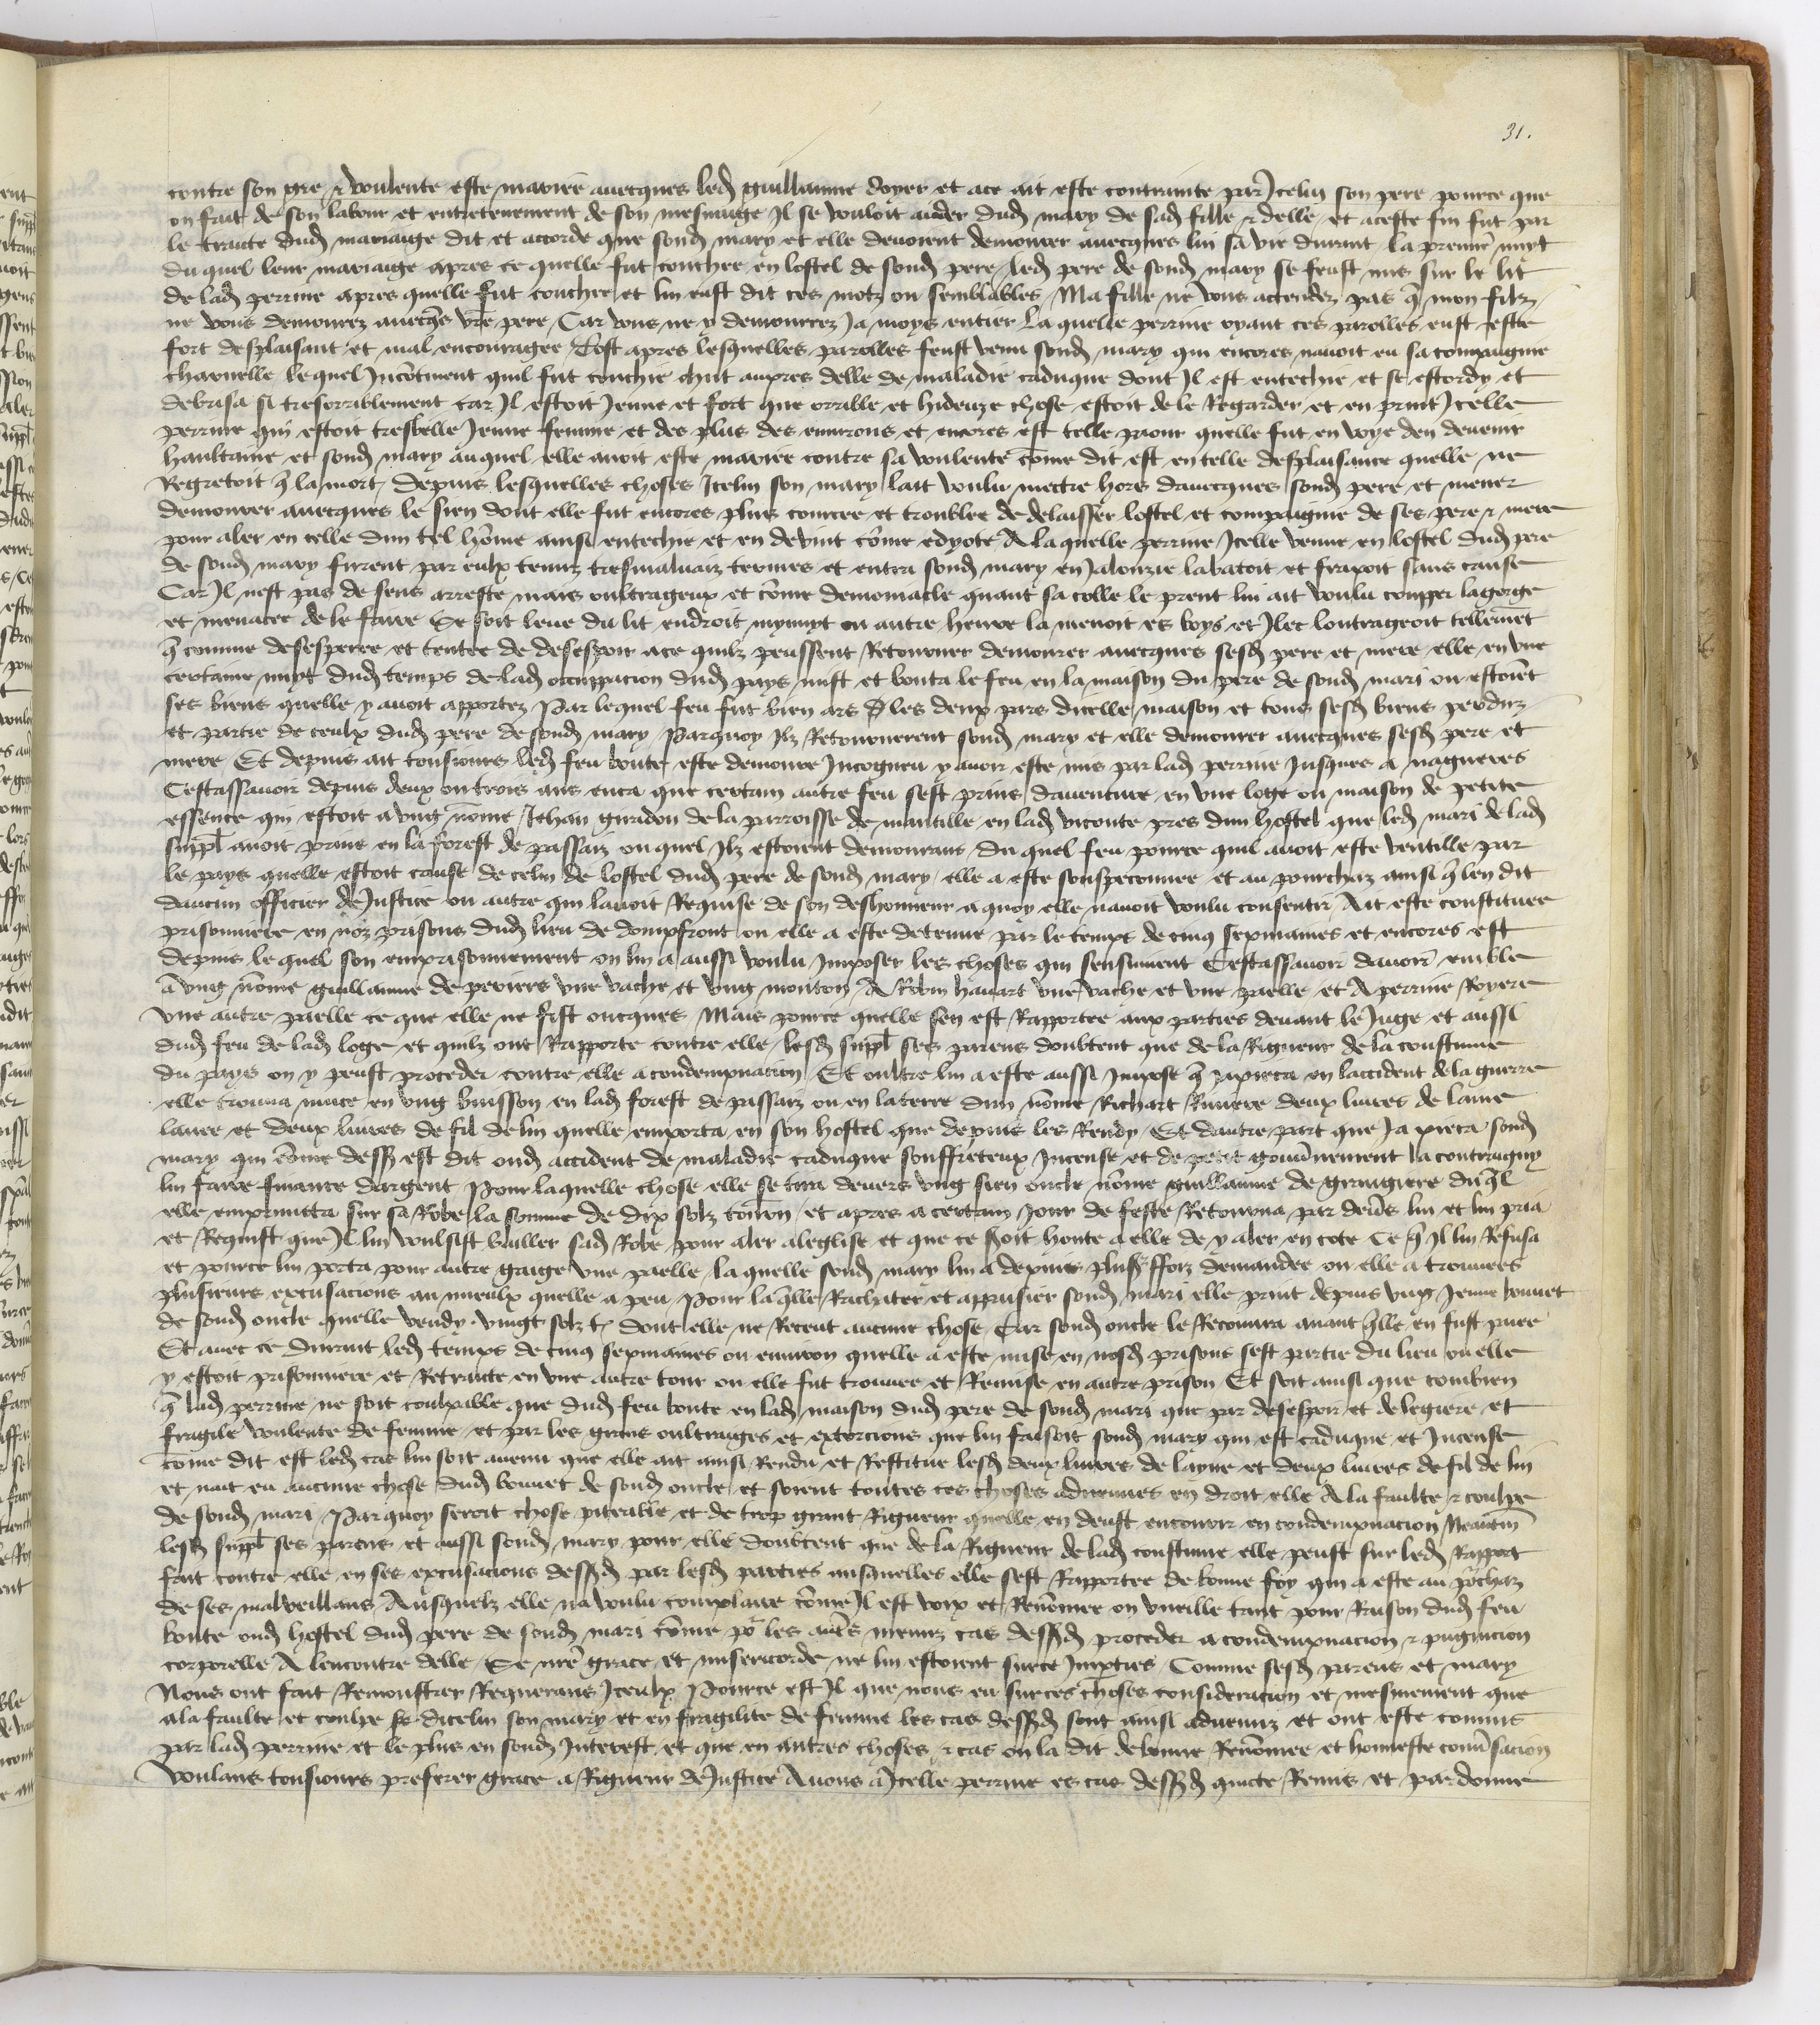 31.
contre son gre & voulente este mariee avecques led guillaume doyer et ace ait este contrainte par Icelui son pere pource que
ou fait de son labour et entretenement de son mesnaige Il se vouloit aider dud mary de sad fille & delle et aceste fin fut par
le traicte dud mariaige dit et accorde que sond mary et elle devoient demourer avecques lui sa vie durant la premiere nuyt
du quel leur mariaige apres ce quelle fut couchee en lostel de sond pere led pere de sond mary se feust mis sur le lit
de lad perrine apres quelle fut couchee et lui eust dit ces motz ou semblables Ma fille ne vous actendez pas q mon filz
ne vous demourez avecqs vre pere Car vous ne y demourrez Ja moys entier La quelle perrine oyant ces parolles eust este
fort desplaisant et mal encouragee Tost apres lesquelles parolles feust venu sond mary qui encores navoit eu sa compaignie
charnelle le quel Incotinent quil fut couchie chut aupres delle de maladie caduque dont Il est entechie et se estordy et
debrisa si tresorriblement car Il estoit Jeune et fort que orrible et hideuze chose estoit de le Regarder et en print Icelle
perrine qui estoit tresbelle Jeune femme et des plus des environs et encores est telle paour quelle fut en voye den devenir
haultaine et sond mary auquel elle avoit este mariee contre sa voulente come dit est en telle desplaisance quelle ne
Regretoit q la mort Depuis lesquelles choses Icelui son mary lait voulu mectre hors davecques sond pere et mener
demourer avecques le sien dont elle fut encores plus courcee et troublee de delaisser lostel et compaignie de ses pere & mere
pour aler en celle dun tel home ainsi entechie et en devint come edyote A la quelle perrine Icelle venue en lostel dud pere
de sond mary furent par eulx tenuz tresmaluaiz termes et entra sond mary en Jalouzie labatoit et frapoit sans cause
Car Il nest pas de sens arreste mais oultrageux et come demoniacle quant sa colle le prent lui ait voulu coupper la gorge
et menacee de le faire Se soit leve du lit endroit mynuyt ou autre heure la menoit es boys et Ilec loutrageoit tellemet
q comme desesperee et tentee de desespoir ace quilz peussent Retourner demourer avecques sesd pere et mere elle en une
certaine nuyt dud temps de lad occuppacion dud pays mist et bouta le feu en la maison du pere de sond mari ou estoiet
ses biens quelle y avoit apportez Par lequel feu fut bien ars les deux pars dicelle maison et tous sesd biens perduz
et partie de ceulx dud pere de sond mary Parquoy Ilz Retournerent sond mary et elle demourer avecques sesd pere et
mere Et depuis ait tousjours led feu boute este demoure Incogneu y avoir este mis par lad perrine Jusques a nagueres
Cestassavoir depuis deux ou trois ans enca que certain autre feu sest prins daventure en une loge ou maison de petite
essence qui estoit a ung nome Jehan guridon de la parroisse de mantille en lad viconte pres dun hostel que led mari de lad
suppl avoit prins en la forest de passaiz ou quel Ilz estoient demourans du quel feu pource quil avoit este ventille par
le pays quelle estoit cause de celui de lostel dud pere de sond mary elle a este souspeconnee et au pourchaz ainsi q len dit
daucun officier de Justice ou autre qui lavoit Requise de son deshonneur a quoy elle navoit voulu consentir Ait este constituee
prisonniere en noz prisons dud lieu de dompfront ou elle a este detenue par le temps de cinq sepmaines et encores est
depuis le quel son emprisonnement on lui a aussi voulu Imposer les choses qui sensuivent Cestassavoir davoir emble
a ung nome guillaume de periers une vache et ung mouton A Robin havart une vache et une paelle et A perrine Royere
une autre paelle ce que elle ne fist oncques Mais pource quelle sen est Rapportee aux parties devant le Juge et aussi
dud feu de lad loge et quilz ont Rapporte contre elle lesd suppl ses parens doubtent que de la Rigueur de la coustume
du pays on y peust proceder contre elle a condempnacion Et oultre lui a este aussi Impose q pieca en laccident de la guerre
elle trouva muce en ung buisson en lad forest de passaiz ou en la terre dun nome Richart Riviere deux livres de laine
lavee et deux livres de fil de lin quelle emporta en son hostel que depuis les Rendy Et dautre part que Ja pieca sond
mary qui come dess est dit oud accident de maladie caduque souffreteux Incense et de petit gouvnement la contraigny
lui faire finance dargent Pour laquelle chose elle se tira devers ung sien oncle nome guillaume de grangiere duql
elle emprunta sur sa Robe la somme de dix solz tourn et apres a certain Jour de feste Retourna par devs lui et lui pria
et Requist que Il lui voulsist bailler sad Robe pour aler a leglise et que ce soit honte a elle de y aler en cote Ce q Il lui Refusa
et pource lui porta pour autre gaige une paelle la quelle sond mary lui a depuis plus ffoiz demandee ou elle a trouvees
plusieurs excusacions au mieulx quelle a peu Pour laqlle Rachater et appaisier sond mari elle print depuis ung Jeune bouvet
de sond oncle quelle vendy vingt solz t dont elle ne Receut aucune chose Car sond oncle le Recouvra avant qlle en fust paiee
Et avec ce durant led temps de cinq sepmaines ou environ quelle a este mise en nosd prisons sest partie du lieu ou elle
y estoit prisonniere et Retraicte en une autre tour ou elle fut trouvee et Remise en autre prison Et soit ainsi que combien
q lad perrine ne soit coulpable que dud feu boute en lad maison dud pere de sond mari que par desespoir et de legiere et
fragile voulente de femme et par les grans oultrages et extorcions que lui faisoit sond mary qui est caduque et Incense
come dit est led cas lui soit avenu que elle ait ainsi Rendu et Restitue lesd deux livres de layne et deux livres de fil de lin
et nait eu aucune chose dud bouvet de sond oncle et soient toutes ces choses advenues en droit elle A la faulte & coulpe
de sond mari Par quoy seroit chose piteable et de trop grant Rigueur quelle en deust encourir en condempnacion Neantm
lesd suppl ses parens et aussi sond mary pour elle doubtent que de la Rigueur de lad coustume elle peust sur led Rapport
fait contre elle en ses excusacions dessd par lesd parties ausquelles elle sest Rapportee de bonne foy qui a este au pchaz
de ses malveillans Ausquelz elle na voulu complaire come Il est voix et Renomee on vueille tant pour Raison dud feu
boute oud hostel dud pere de sond mari come po les auts menuz cas dessd proceder a condempnacion & pugnicion
corporelle A lencontre delle Se nre grace et misericorde ne lui estoient surce Imparties Comme sesd parens et mary
Nous ont fait Remonstrer Requerans Iceulx Pource est Il que nous eu surces choses consideracion et mesmement que
a la faulte et coulpe dicelui son mary et en fragilite de femme les cas dessd sont ainsi advenuz et ont este comis
par lad perrine et le plus en sond Interest et que en autres choses & cas on la dit de bonne Renomee et honneste convsacion
Voulans tousjours preferer grace a Rigueur de Justice Avons a Icelle perrine es cas dessd quicte Remis et pardonne